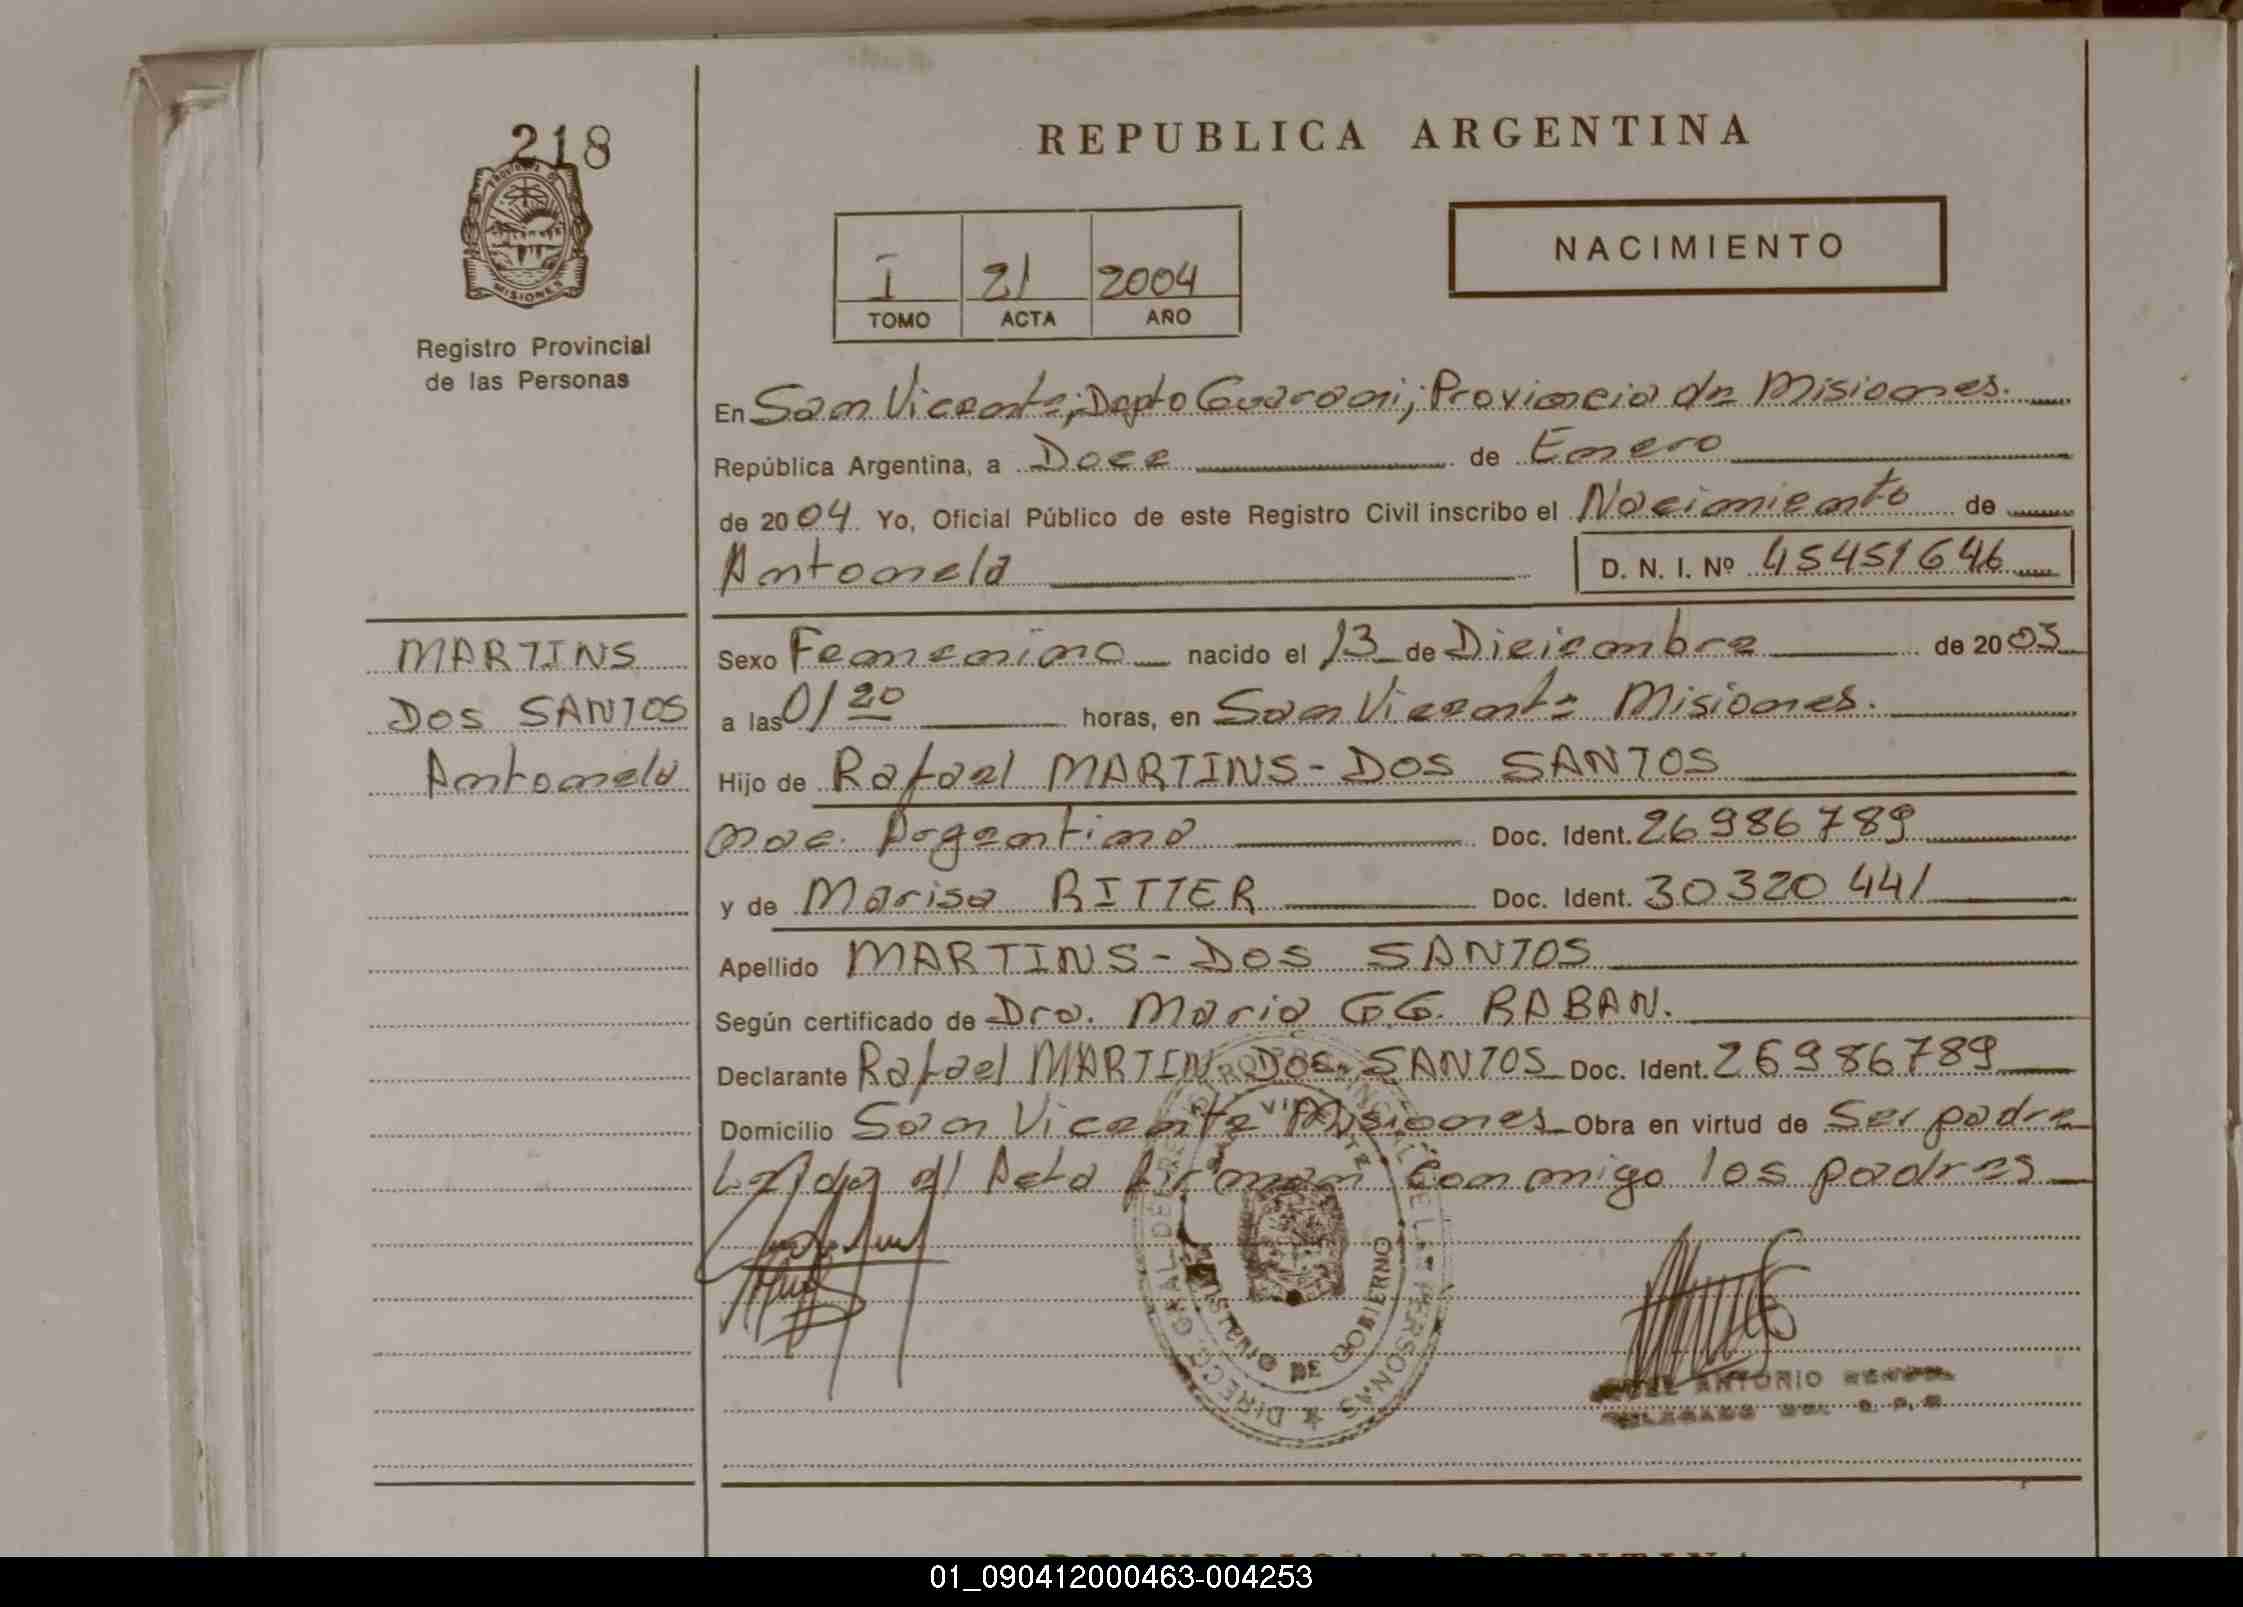 218
PROVINCIA DE
MISIONES
Registro Provincial
de las Personas
REPUBLICA ARGENTINA
I 21 2004
TOMO ACTA AÑO
NACIMIENTO
En San Vicente; Depto Guarani; Provincia de Misiones.
República Argentina, a Doce de Enero
de 2004 Yo, Oficial Público de este Registro Civil inscribo el Nacimiento de
Antonela D. N. I. Nº 45451646
MARTINS
DOS SANTOS
Antonela
Sexo Femenino nacido el 13 de Dieiembre de 2003
a las 01 20 horas, en San Vicente Misiones.
Hijo de Rafael MARTINS-DOS SANTOS
nac. Argentina Doc. Ident. 26986789
y de Marisa RITTER Doc. Ident. 30320441
Apellido MARTINS-DOS SANTOS
Según certificado de Dra. Maria GG. RABAN.
Declarante Rafael MARTIN DOS SANTOS Doc. Ident. 26986789
Domicilio San Vicente Misiones Obra en virtud de Ser padre
Leida el Acta firman conmigo los padres
DIRECC. GRAL. DEL REG. PROVINCIAL DE LAS PERSONAS
MINISTERIO DE GOBIERNO
ANTONIO
DELEGADO
REPUBLICA ARGENTINA
01_090412000463-004253